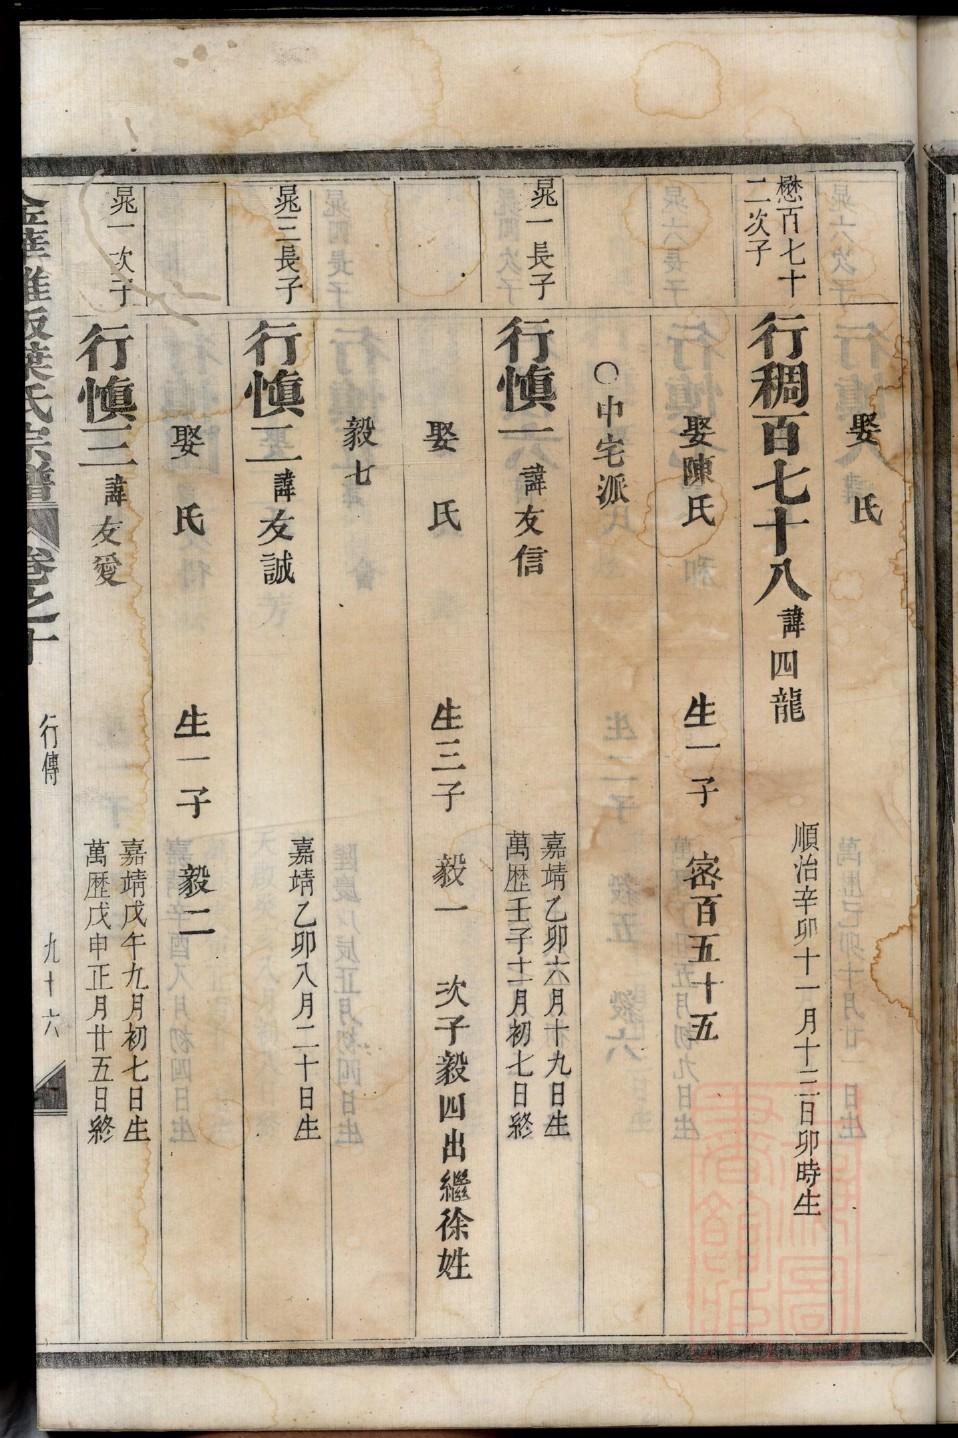 娶 氏
懋百七十
二次子
行稠百七十八 諱四龍
順治辛卯十一月十三日卯時生
娶陳氏 生一子 密百五十五
○中宅派
晁一長子
行慎一 諱友信
嘉靖乙卯六月十九日生
萬歷壬子十二月初七日終
娶 氏 生三子 毅一 次子毅四出繼徐姓
毅七
晁三長子
行慎二 諱友誠
嘉靖乙卯八月二十日生
娶 氏 生一子 毅二
晁一次子
行慎三 諱友愛
嘉靖戊午九月初七日生
萬歷戊申正月廿五日終
葉氏宗譜 卷之十 行傳 九十六